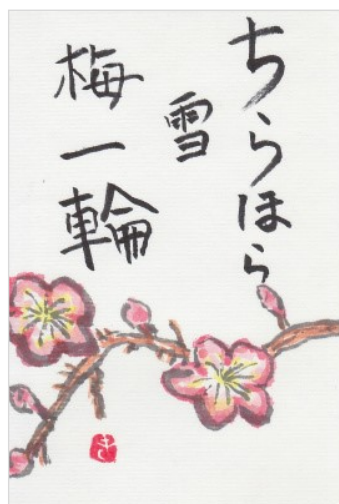 ちらほら
雪
梅一輪